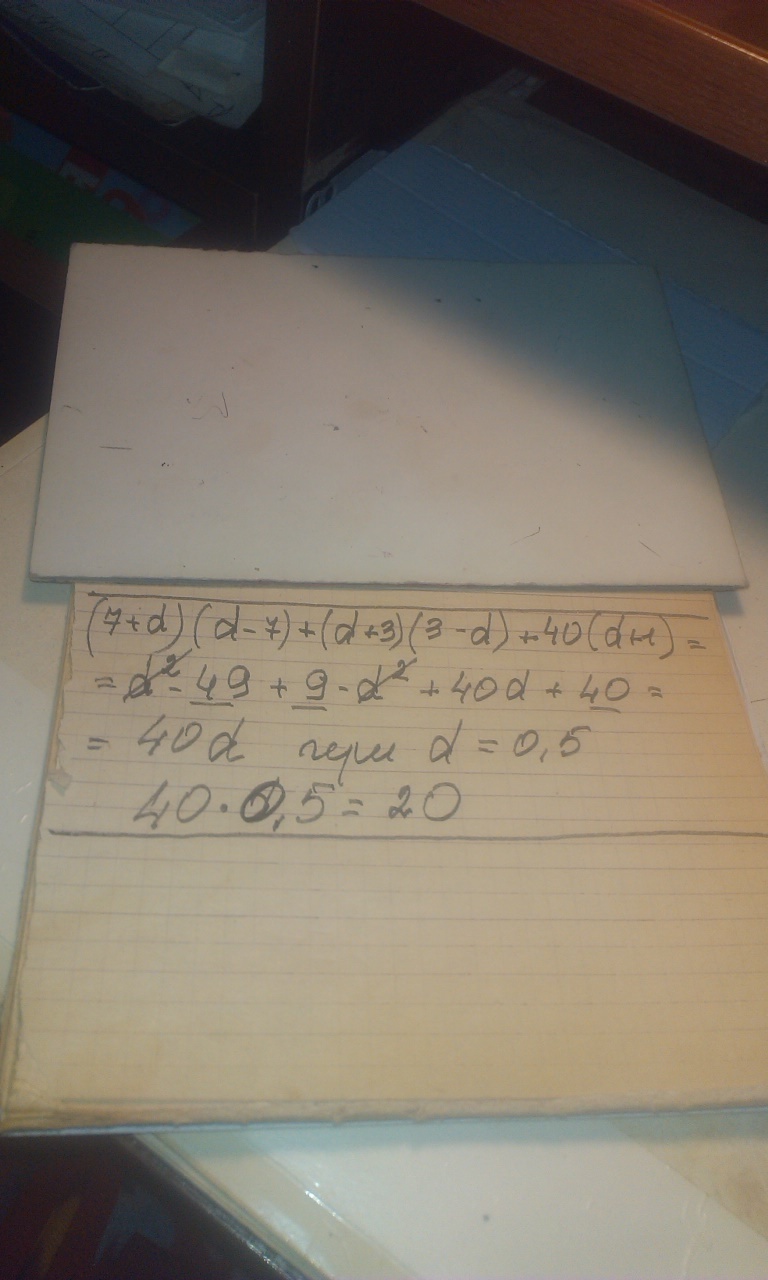 (7+d)(d-7)+(d+3)(3-d)+40(d+1)=
=d²-49+9-d²+40d+40=
= 40d при d=0,5
40·0,5=20